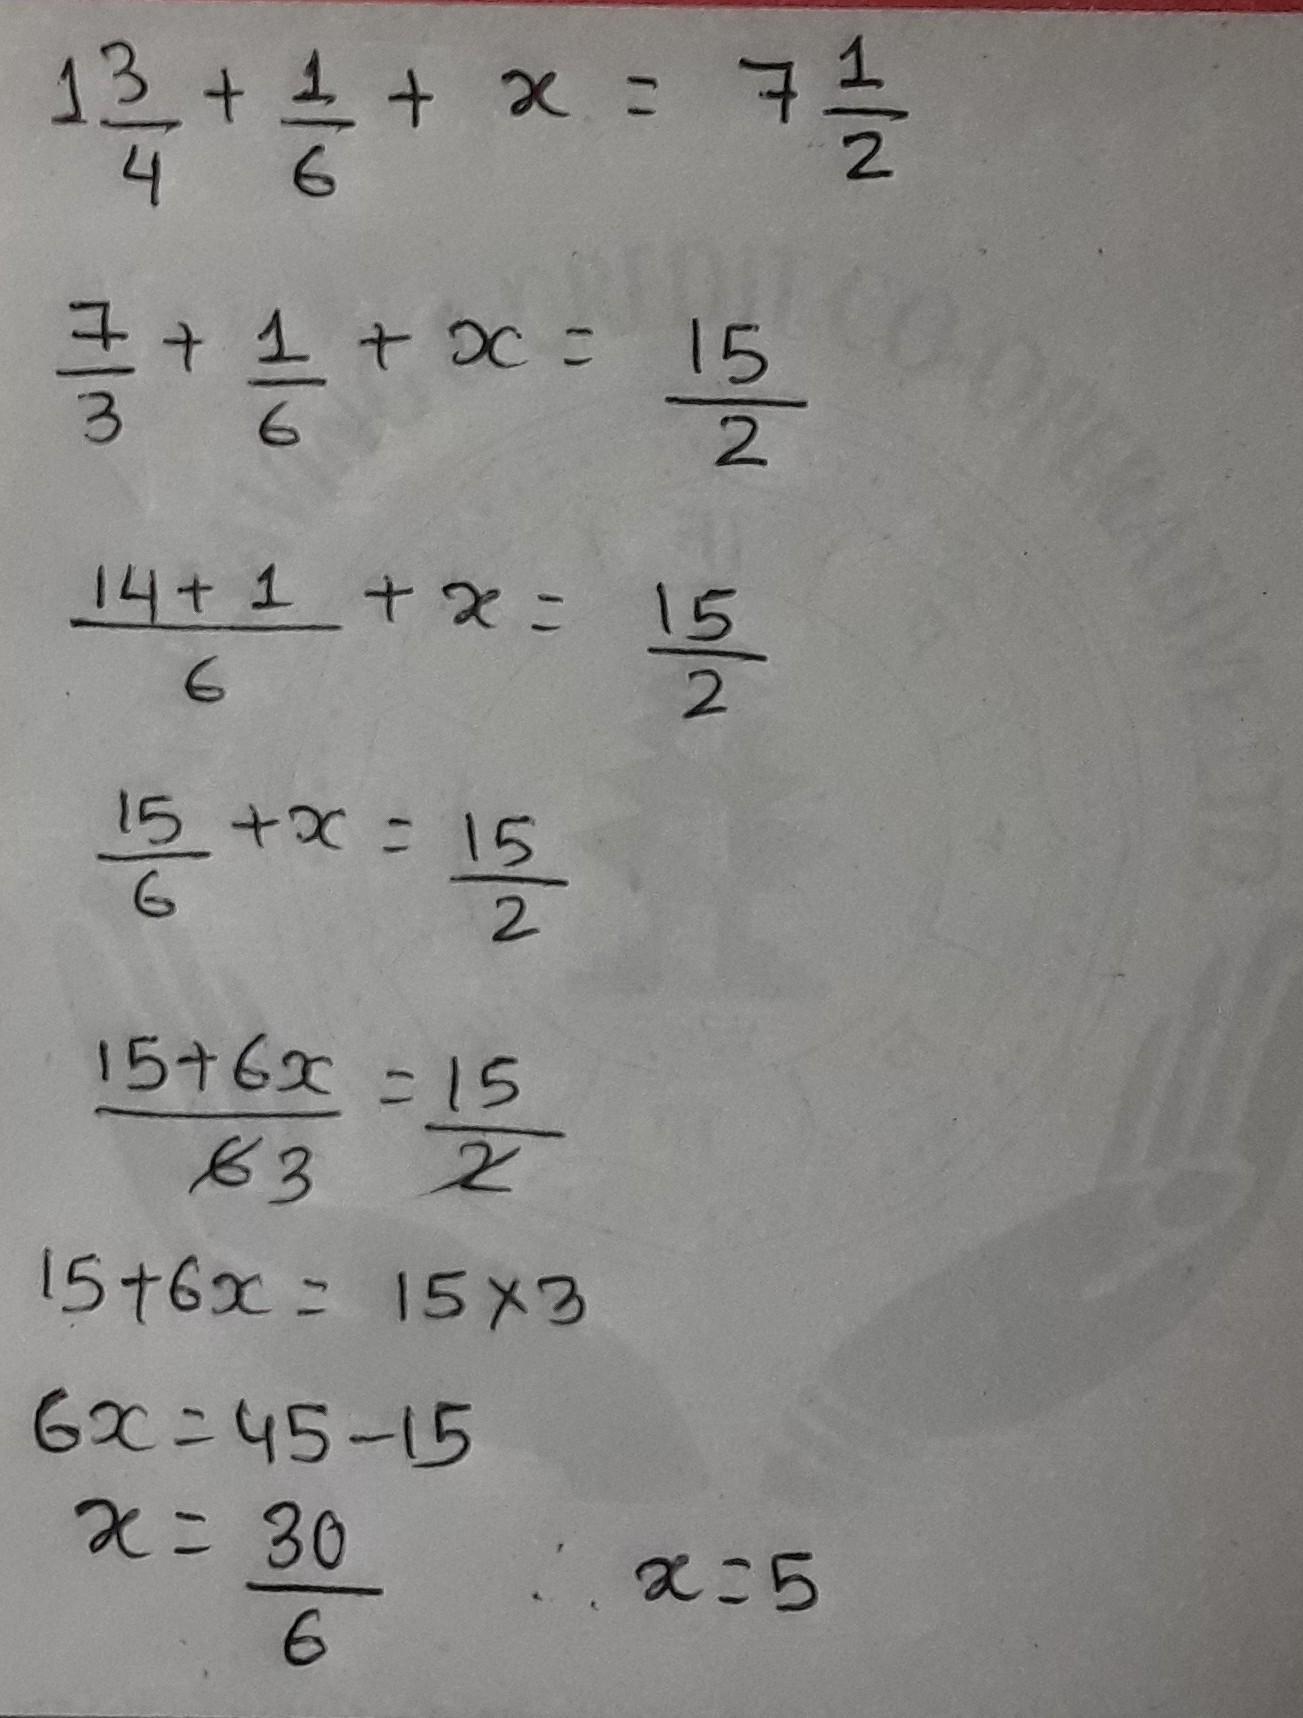 1 3/4 + 1/6 + x = 7 1/2
7/3 + 1/6 + x = 15/2
14+1/6 + x = 15/2
15/6 + x = 15/2
15+6x/6 3 = 15/2
15+6x = 15×3
6x = 45-15
x = 30/6 ∴ x = 5